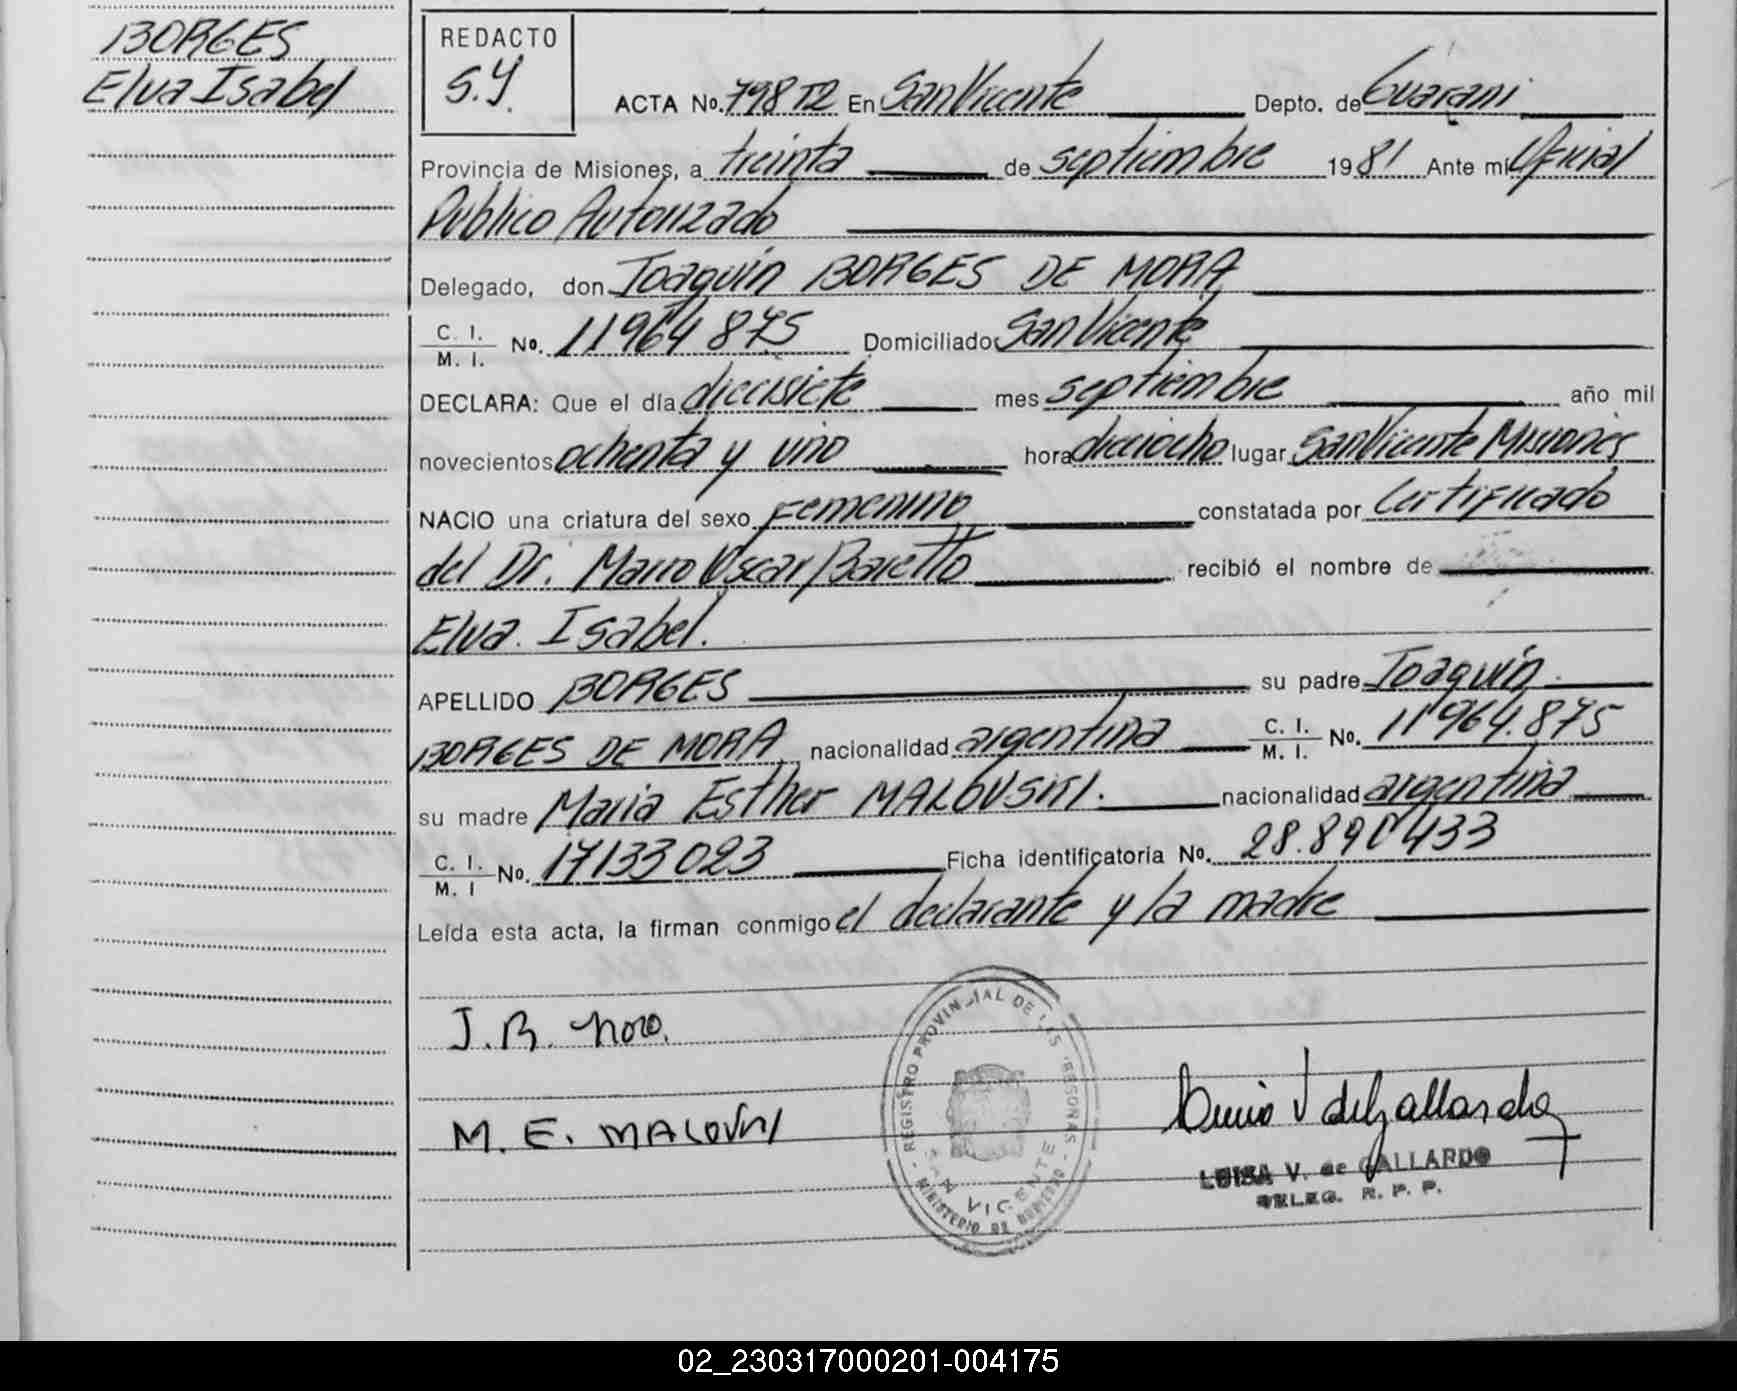 BORGES
Elva Isabel
REDACTO
S.Y.
ACTA No. 798 T2 En San Vicente Depto. de Guarani
Provincia de Misiones, a treinta de septiembre 1981 Ante mi Oficial
Publico Autorizado
Delegado, don Joaquín BORGES DE MORA
C. I.
M. I. No. 11964875 Domiciliado San Vicente
DECLARA: Que el día diecisiete mes septiembre año mil
novecientos ochenta y uno hora dieciocho lugar San Vicente Misiones
NACIO una criatura del sexo Femenino constatada por Certificado
del Dr. Mario Oscar Baretto recibió el nombre de
Elva. Isabel.
APELLIDO BORGES su padre Joaquín
BORGES DE MORA nacionalidad argentina C. I.
M. I. No. 11964.875
su madre Maria Esther MALOVSKI. nacionalidad argentina
C. I.
M. I No. 17133023 Ficha identificatoria No. 28.890433
Leída esta acta, la firman conmigo el declarante y la madre
J. B. Moro.
M. E. MALOVSKI
REGISTRO PROVINCIAL DE LAS PERSONAS
SAN VICENTE
MINISTERIO DE GOBIERNO
LUISA V. de GALLARDO
DELEG. R. P. P.
02_230317000201-004175